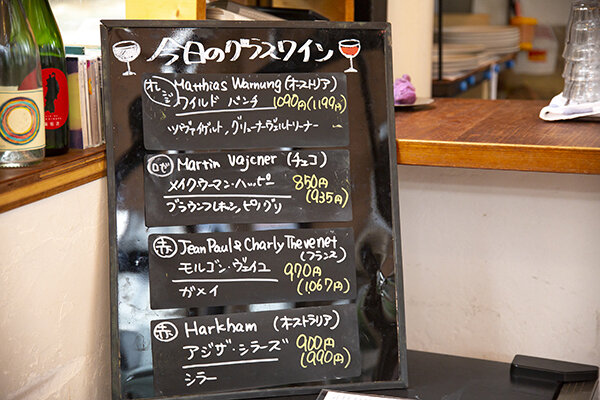 今日のグラスワイン
オレンジ Matthias Warnung (オーストリア)
ワイルド パンチ 1090円(1199円)
ツヴァイゲルト, グリューナーヴェルトリーナー
ロゼ Martin Vajcner (チェコ)
メイクウーマン・ハッピー 850円
(935円)
ブラウンフレンキッシュ, ピノグリ
赤 Jean Paul & Charly Thevenet
(フランス)
モルゴン・ヴェイユ 970円
(1067円)
ガメイ
赤 Harkham (オーストラリア)
アジザ・シラーズ 900円
(990円)
シラー